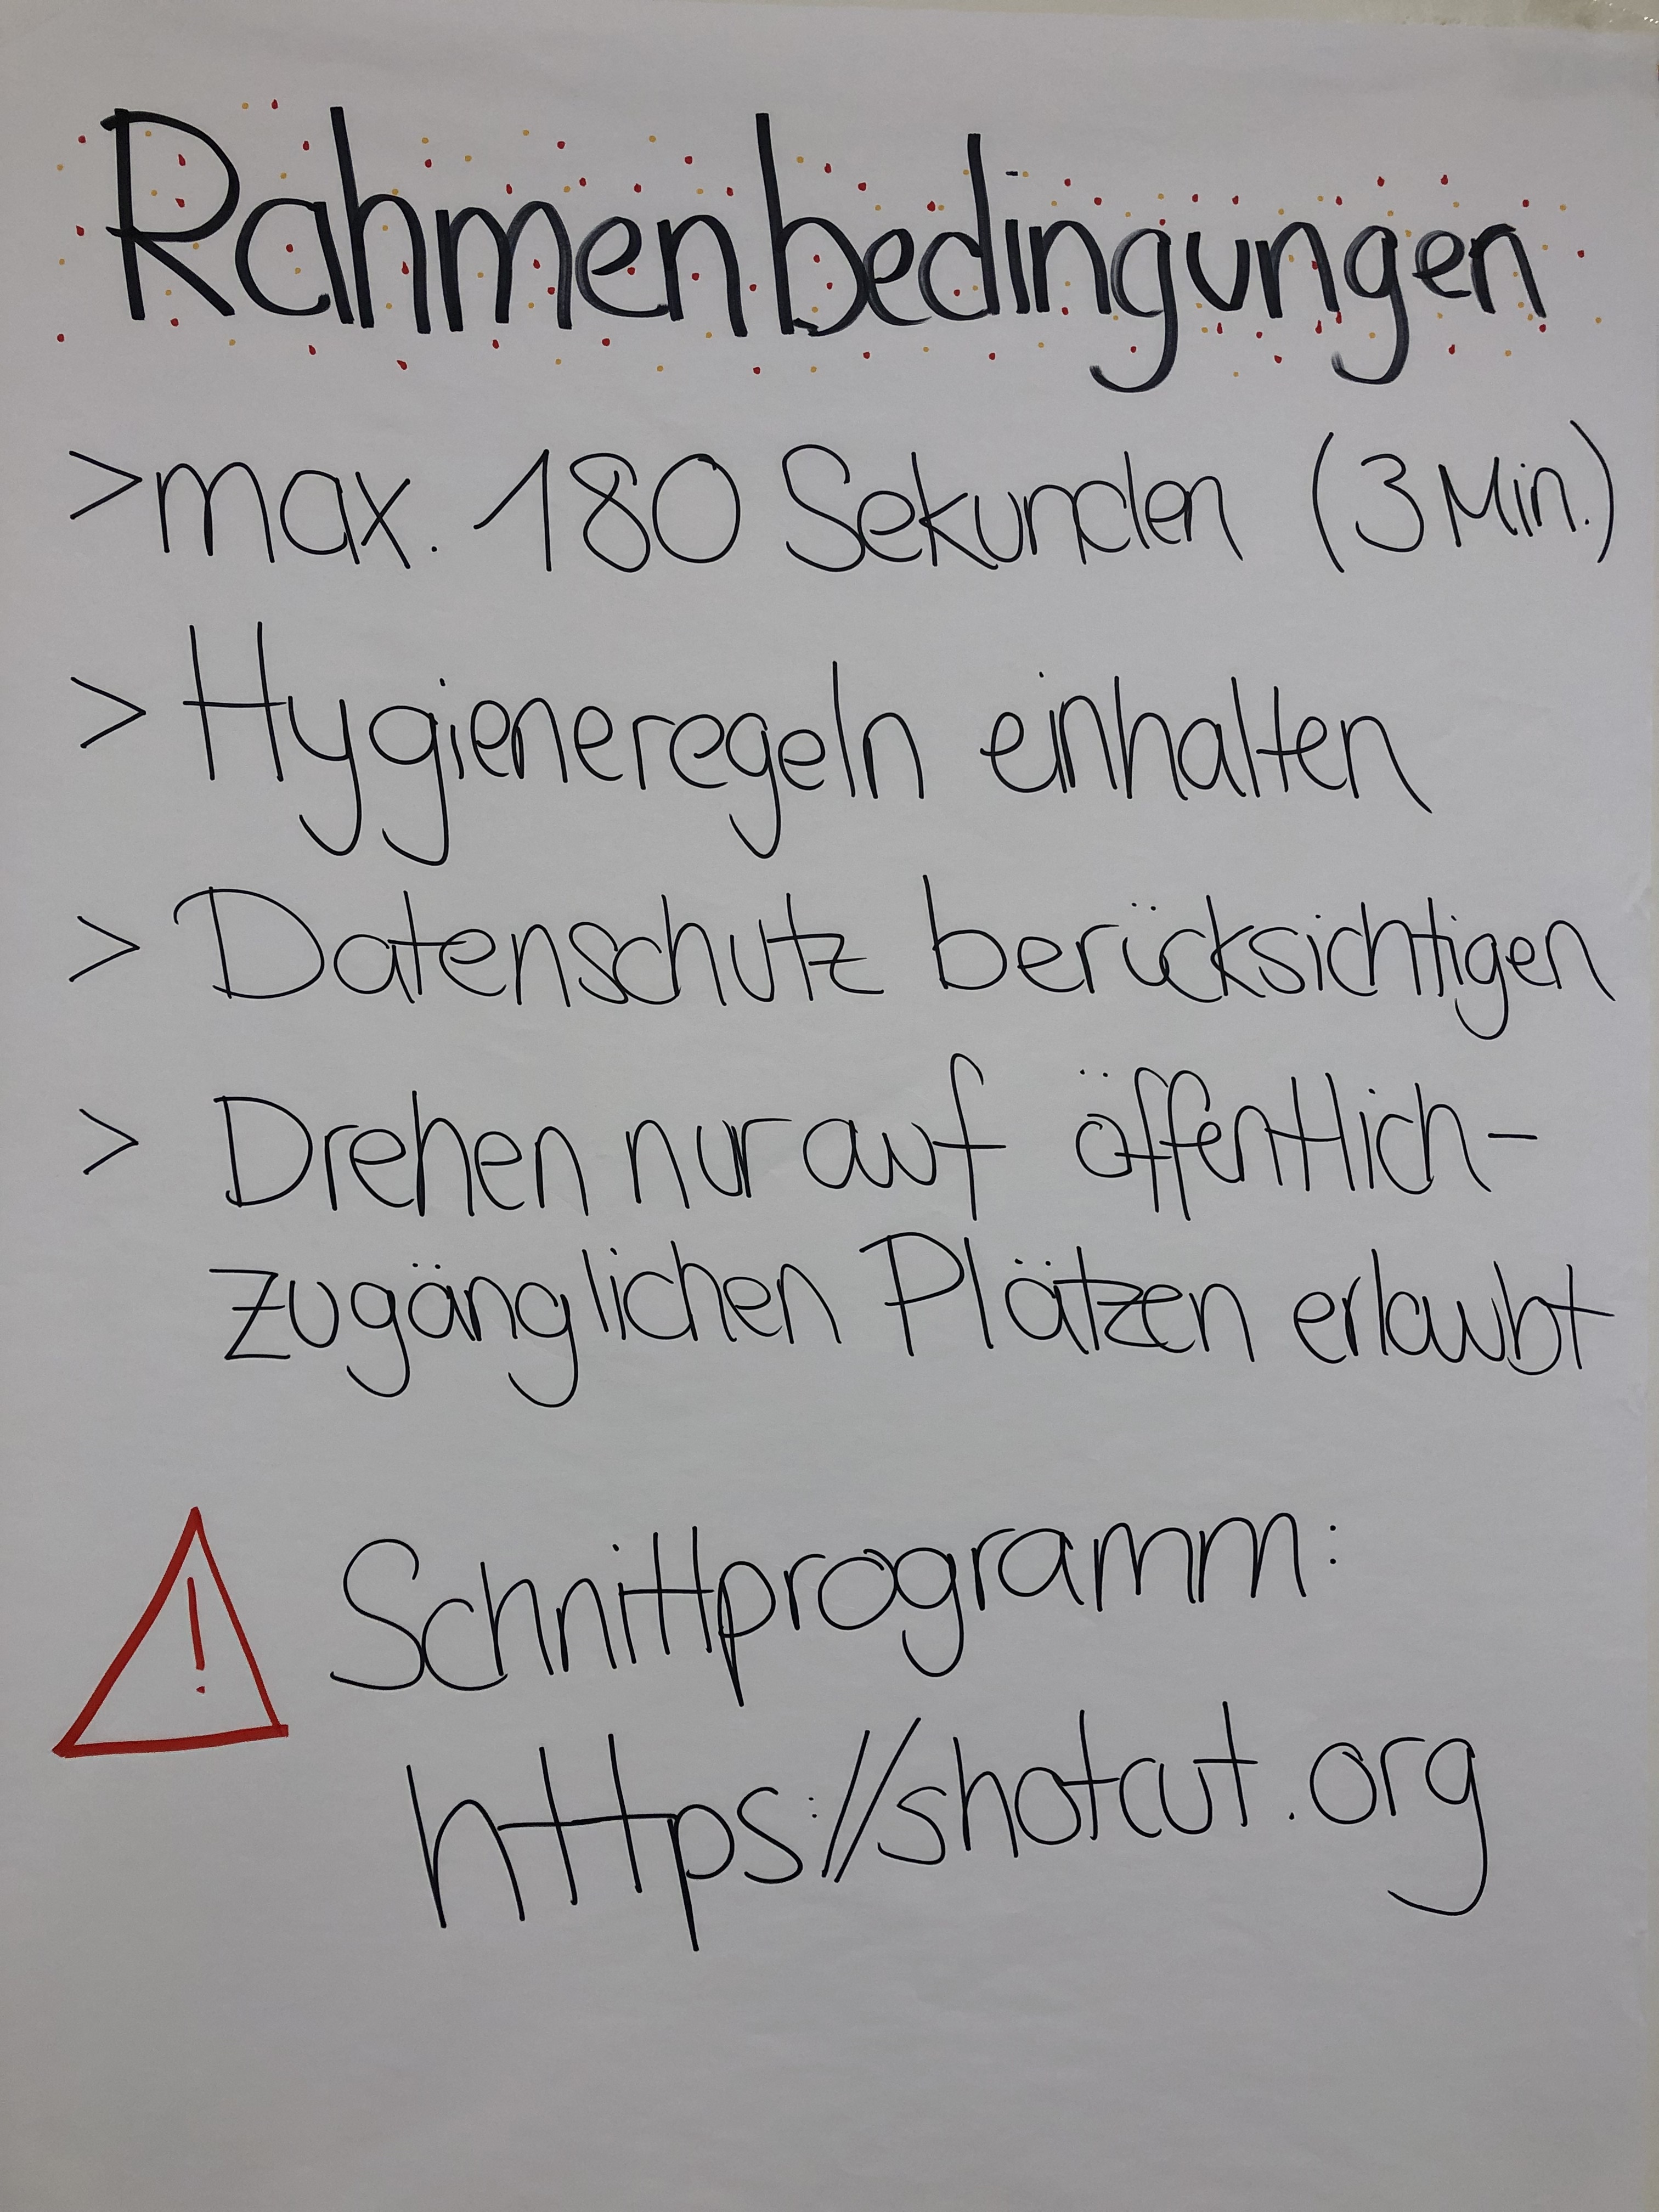 Rahmenbedingungen
>max. 180 Sekunden (3 Min.)
> Hygieneregeln einhalten
> Datenschutz berücksichtigen
> Drehen nur auf öffentlich-
zugänglichen Plätzen erlaubt
! Schnittprogramm:
https://shotcut.org